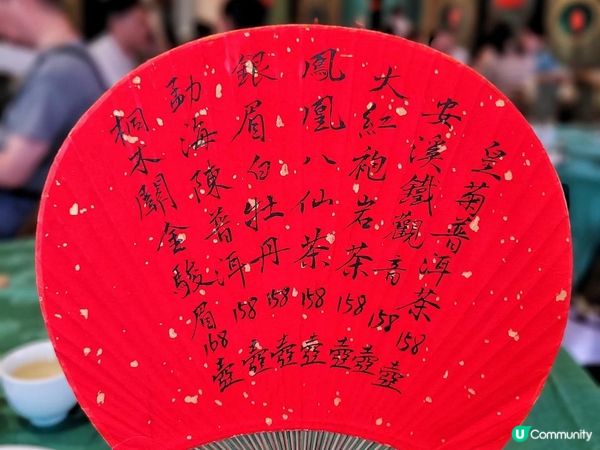 皇菊普洱茶158壺
安溪鐵觀音158壺
大紅袍岩茶158壺
鳳凰八仙茶158壺
銀眉白牡丹158壺
勐海陳普洱158壺
桐木關金駿眉168壺
U Community